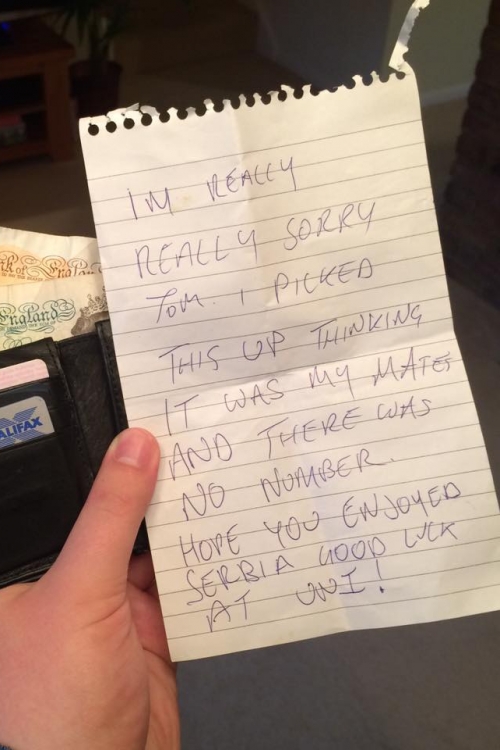 IM REALLY
REALLY SORRY
TOM. I PICKED
THIS UP THINKING
IT WAS MY MATES
AND THERE WAS
NO NUMBER.
HOPE YOU ENJOYED
SERBIA GOOD LUCK
AT UNI!
of England
England
ALIFAX